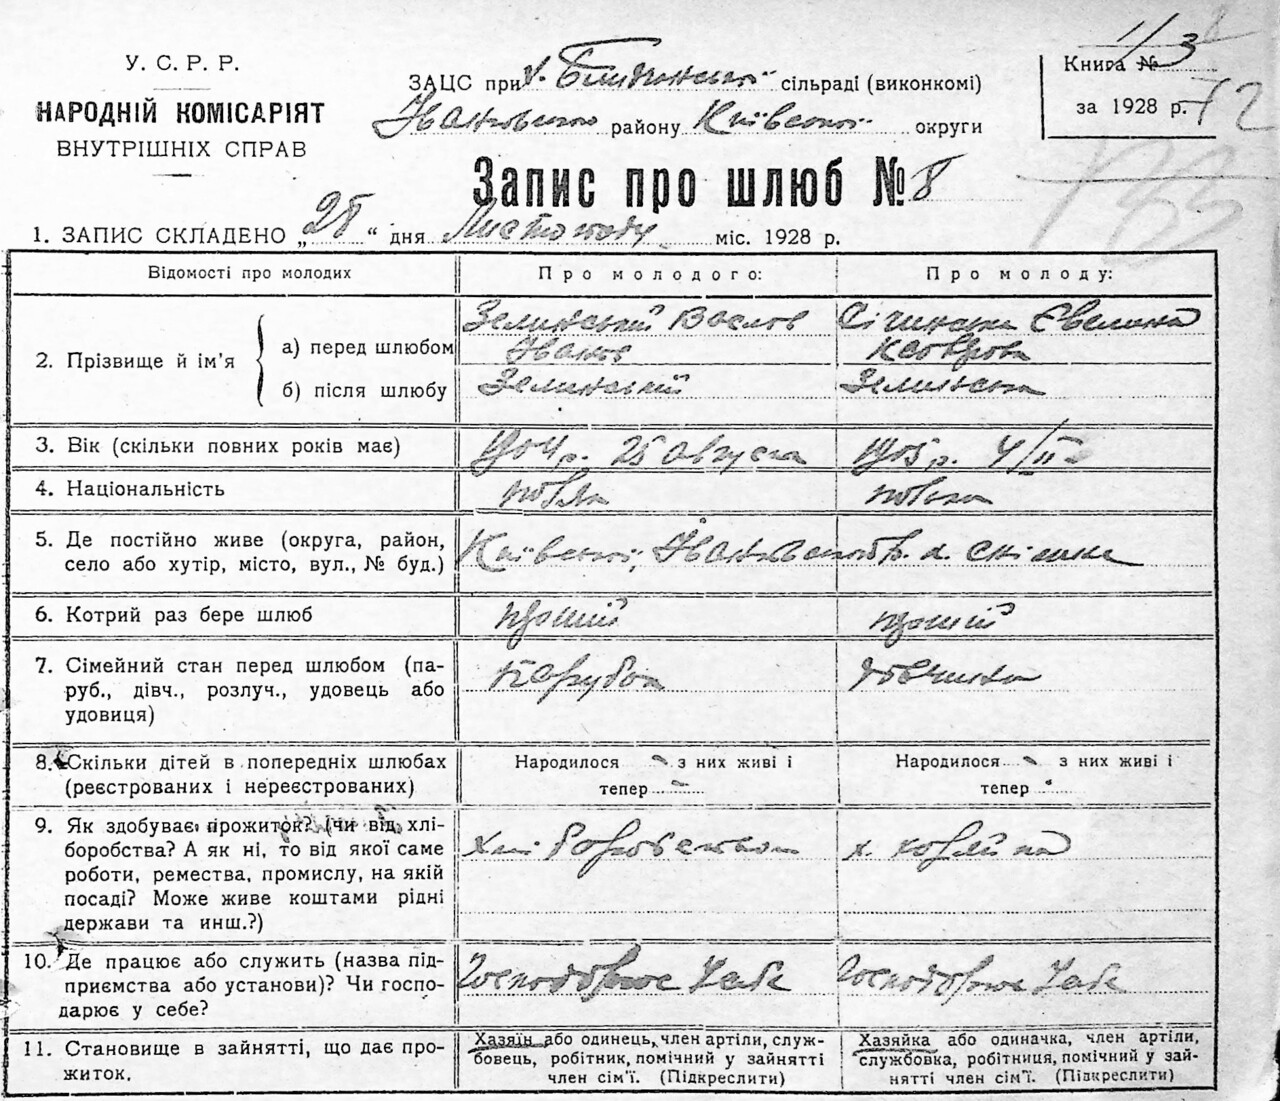 У. С. Р. Р.
НАРОДНІЙ КОМІСАРІЯТ
ВНУТРІШНІХ СПРАВ
ЗАЦС при сільраді (виконкомі)
Іванковского району Київської округи
Книга № 1/3
за 1928 р. 72
Запис про шлюб № 8
1. ЗАПИС СКЛАДЕНО „25“ дня Листопаду міс. 1928 р.
Відомості про молодих
Про молодого:
Про молоду:
2. Прізвище й ім'я
а) перед шлюбом
Зелинський Вацлов
Іванов
Євелина
б) після шлюбу
Зелинський
Зелинська
3. Вік (скільки повних років має)
1904 р. 25 августа
1905 р. 4/II
4. Національність
поляк
полька
5. Де постійно живе (округа, район,
село або хутір, місто, вул., № буд.)
Київської, Іванковського р.
6. Котрий раз бере шлюб
перший
перший
7. Сімейний стан перед шлюбом (па-
руб., дівч., розлуч., удовець або
удовиця)
Парубок
дівчина
8. Скільки дітей в попередніх шлюбах
(реєстрованих і нереєстрованих)
Народилося - з них живі і
тепер -
Народилося - з них живі і
тепер -
9. Як здобуває прожиток? (чи від хлі-
боробства? А як ні, то від якої саме
роботи, ремества, промислу, на якій
посаді? Може живе коштами рідні
держави та инш.?)
Хліборобством
10. Де працює або служить (назва під-
приємства або установи)? Чи госпо-
дарює у себе?
Господарює у себе
Господарює у себе
11. Становище в зайнятті, що дає про-
житок.
Хазяїн або одинець, член артіли, служ-
бовець, робітник, помічний у зайнятті
член сім'ї. (Підкреслити)
Хазяйка або одиначка, член артіли,
службовка, робітниця, помічний у зай-
нятті член сім'ї. (Підкреслити)